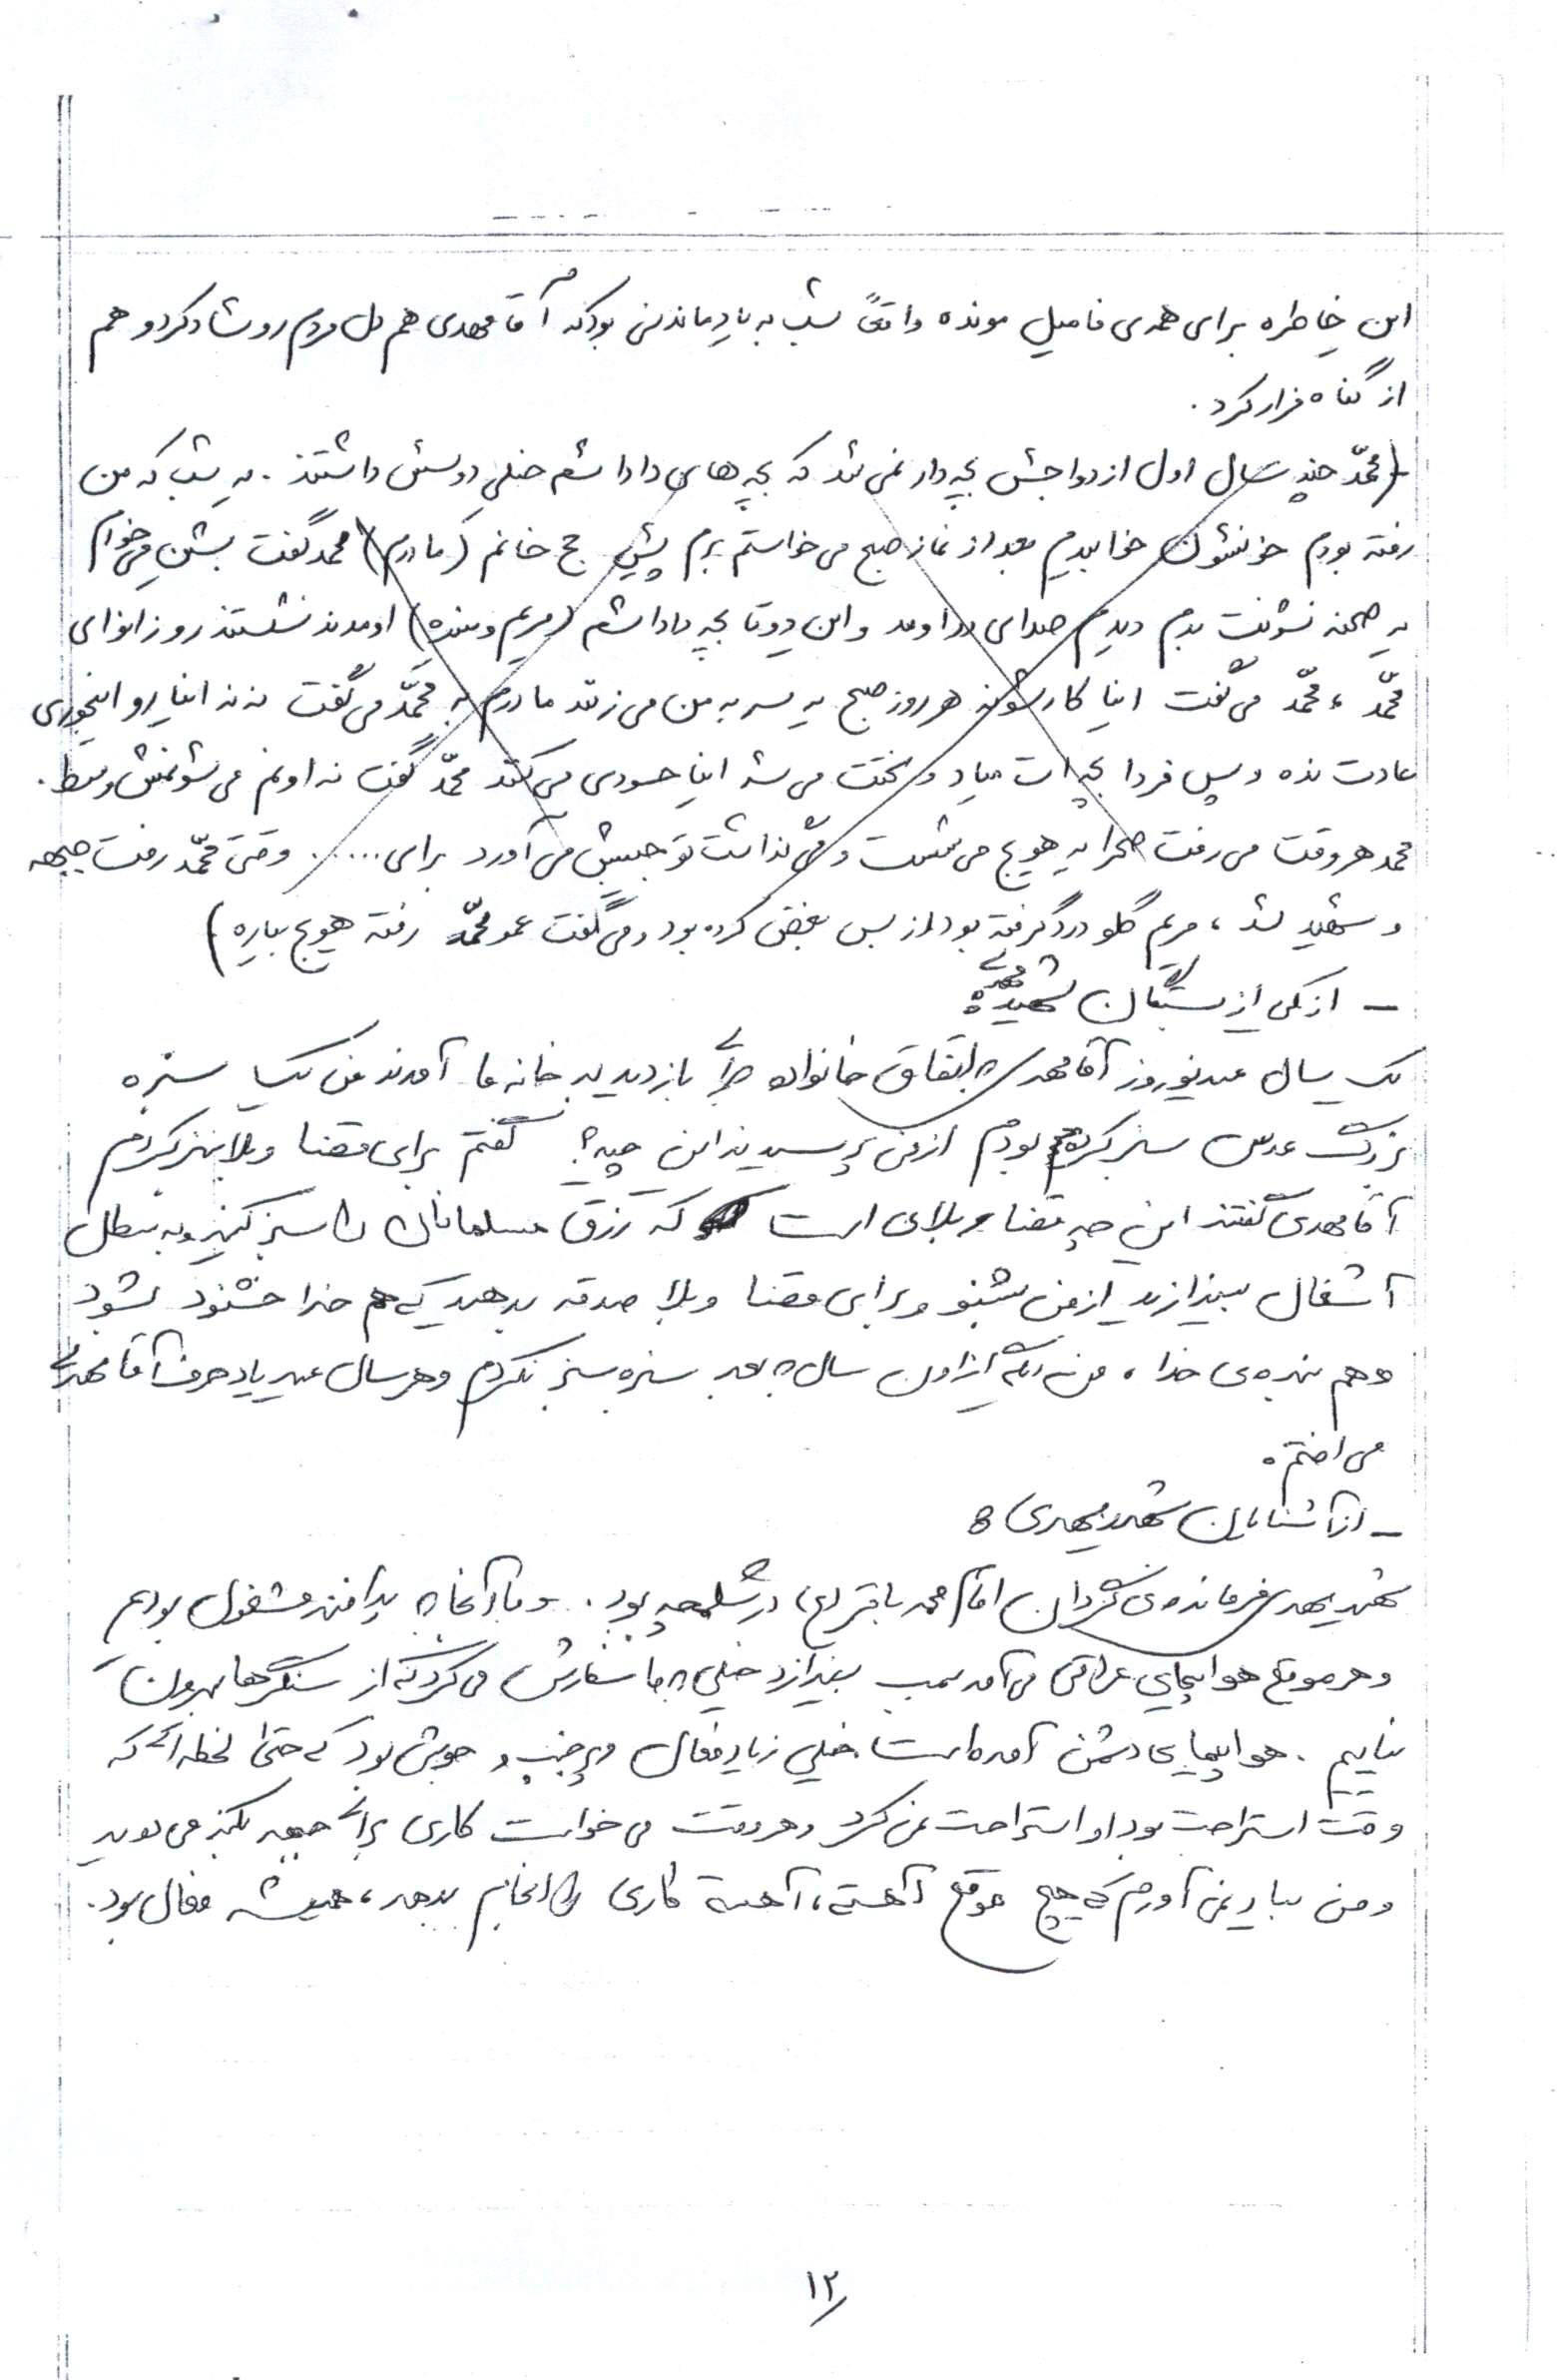 این خاطره برای همه‌ی فامیل مونده واقعاً شب به یاد ماندنی بود که آقا مهدی هم دل مردم رو شاد کرد و هم
از گناه فرار کرد.
(محمّد چند سال اول ازدواجش بچه‌دار نمی‌شد که بچه‌های داداشم خیلی دوستش داشتند. یه شب که من
رفته بودم خونشون خوابیدم بعد از نماز صبح می‌خواستم برم پیش حج خانم (مادرم) محمد گفت بشین می‌خوام
یه صحنه نشونت بدم دیدم صدای در اومد و این دو تا بچه داداشم (مریم و ) اومدند نشستند رو زانوای
محمّد، محمّد می‌گفت اینا کارشونه هر روز صبح یه سر به من می‌زنند مادرم به محمّد می‌گفت ننه اینا رو اینجوری
عادت نده و پس فردا بچه‌ات میاد و سختت می‌شه اینا حسودی می‌کنند محمّد گفت نه اونم می‌شونمش وسط.
محمد هر وقت می‌رفت صحرا یه هویج می‌شست و می‌ذاشت تو جیبش می‌آورد برای ...... وقتی محمّد رفت جبهه
و شهید شد، مریم گلو درد گرفته بود از بس بغض کرده بود و می‌گفت عمو محمّد رفته هویج بیاره)
- از یکی از بستگان شهید مهدی:
یک سال عید نوروز آقا مهدی به اتفاق خانواده برای بازدید به خانه ما آمدند من یک سبزه
بزرگ عدس سبز کرده بودم از من پرسیدند این چیه؟ گفتم برای قضا و بلا سبز کردم
آقا مهدی گفتند این چه قضا و بلای است که رزق مسلمانان را سبز کنید و به سطل
آشغال بیندازید از من بشنو و برای قضا و بلا صدقه بدهید که هم خدا خشنود بشود
و هم بنده‌ی خدا، من دیگه از اون سال به بعد سبزه سبز نکردم و هر سال عید یاد حرف آقا مهدی
می‌افتم.
- از آشنایان شهید مهدی:
شهید مهدی فرمانده‌ی گردان امام محمد باقر (ع) در شلمچه بود. و ما آنجا به پدافند مشغول بودیم
و هر موقع هواپیمای عراقی می‌آمد بمب بیندازد خیلی به ما سفارش می‌کرد که از سنگرها بیرون
نیاییم. هواپیمای دشمن آمده است خیلی زیاد فعال و پر جنب و جوش بود که حتی لحظه‌ای که
وقت استراحت بود او استراحت نمی‌کرد و هر وقت می‌خواست کاری برای جبهه بکند می‌دوید
و من بیاد نمی‌آورم که هیچ موقع آهسته، آهسته کاری را انجام بدهد، همیشه فعال بود.
۱۲